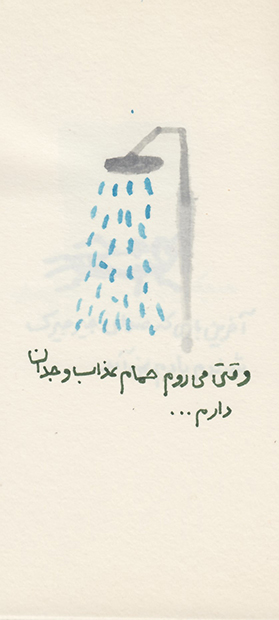 وقتی می روم حمام عذاب وجدان
دارم ...